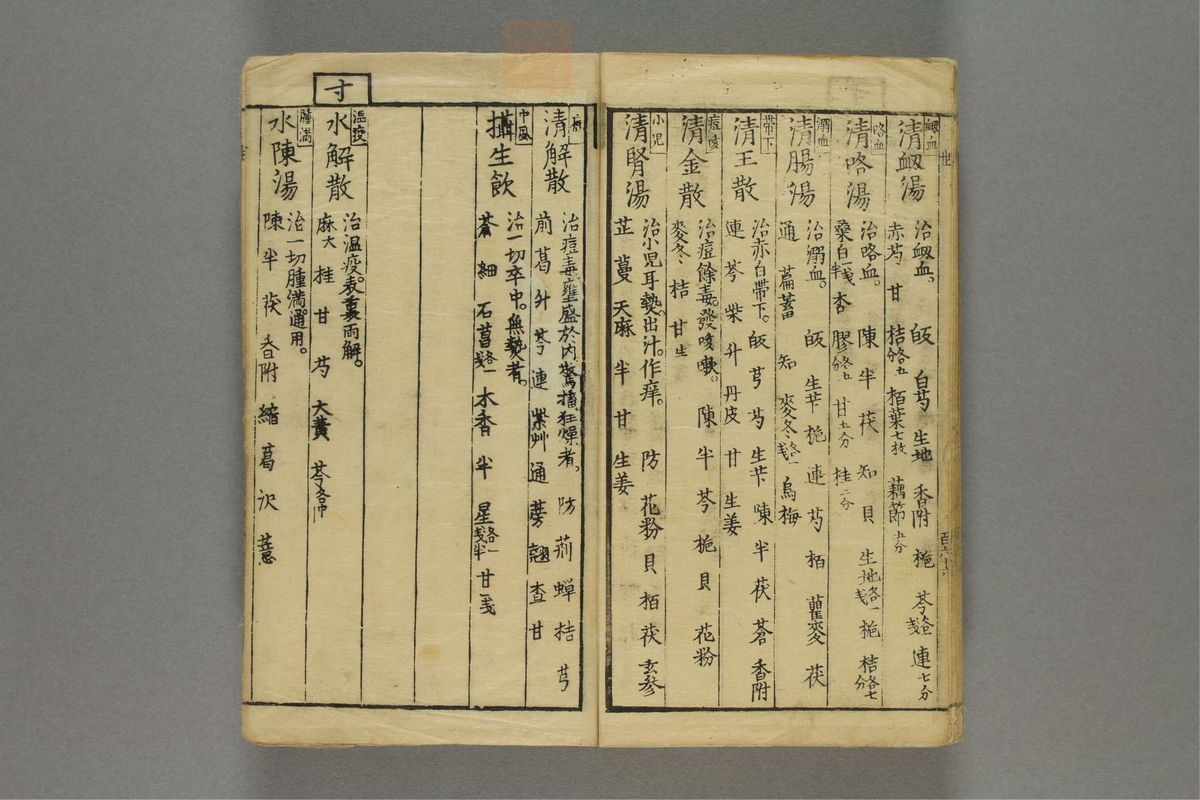 世
百六十六
衂血
清衂湯
治衂血。 㽲 白芍 生地 香附 梔 芩各一戔 連七分
赤芍 甘 桔各五分 栢葉七枚 藕節五分
咯血
清咯湯
治咯血。 陳 半 茯 知 貝 生地各一戔 梔 桔各七分
桑白一戔半 杏 膠各五分 甘五分 桂二分
溺血
清腸湯
治溺血。 㽲 生芐 梔 連 芍 栢 瞿麥 茯
通 萹蓄 知 麥冬各一戔 烏梅
帶下
清玉散
治赤白帶下。 㽲 芎 芍 生芐 陳 半 茯 蒼 香附
連 芩 柴 升 丹皮 甘 生姜
痘咳
清金散
治痘餘毒。發咳嗽。 陳 半 芩 梔 貝 花粉
麥冬 桔 甘生
小児
清腎湯
治小児耳𤍠。出汁。作痒。 防 花粉 貝 栢 茯 玄参
芷 蔓 天麻 半 甘 生姜
清解散
治痘毒壅盛於内驚搐狂燥者。 防 荊 蝉 桔 芎
前 葛 升 芩 連 紫艸 通 蒡 翹 查 甘
中風
攝生飲
治一切卒中。無𤍠者。
蒼 細 石菖各一戔 木香 半 星各一戔半 甘一戔
寸
温疫
水解散
治温疫。表裏両解。
麻大 桂 甘 芍 大黄 芩各中
腫満
水陳湯
治一切腫満。通用。
陳 半 茯 香附 縮 葛 沢 薏